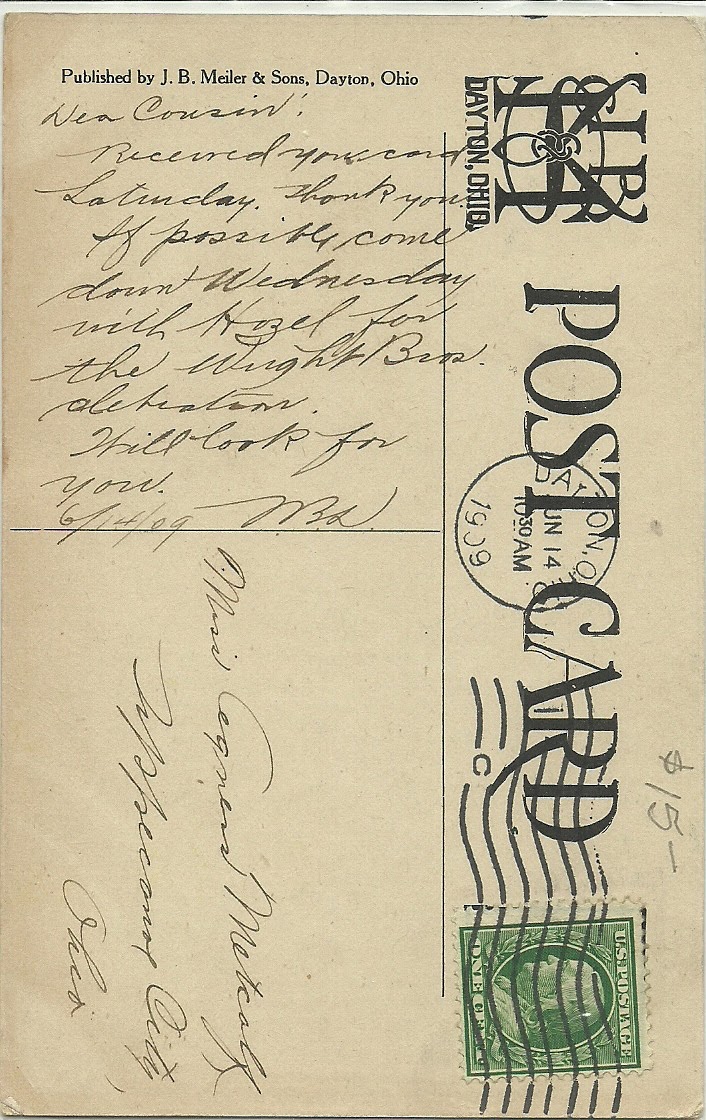 Published by J. B. Meiler & Sons, Dayton, Ohio
Dear Cousin:
Received your card
Saturday. Thank you
If possible, come
down Wednesday
with Hazel for
the Wright Bros.
celebration.
Will look for
you.
6/14/09
Miss Agnes Metcalf
Tippecanoe City,
Ohio
DAYTON, OHIO.
POST CARD
DAYTON, O.
JUN 14
10 30 AM
1909
C
$15-
U.S. POSTAGE
ONE CENT